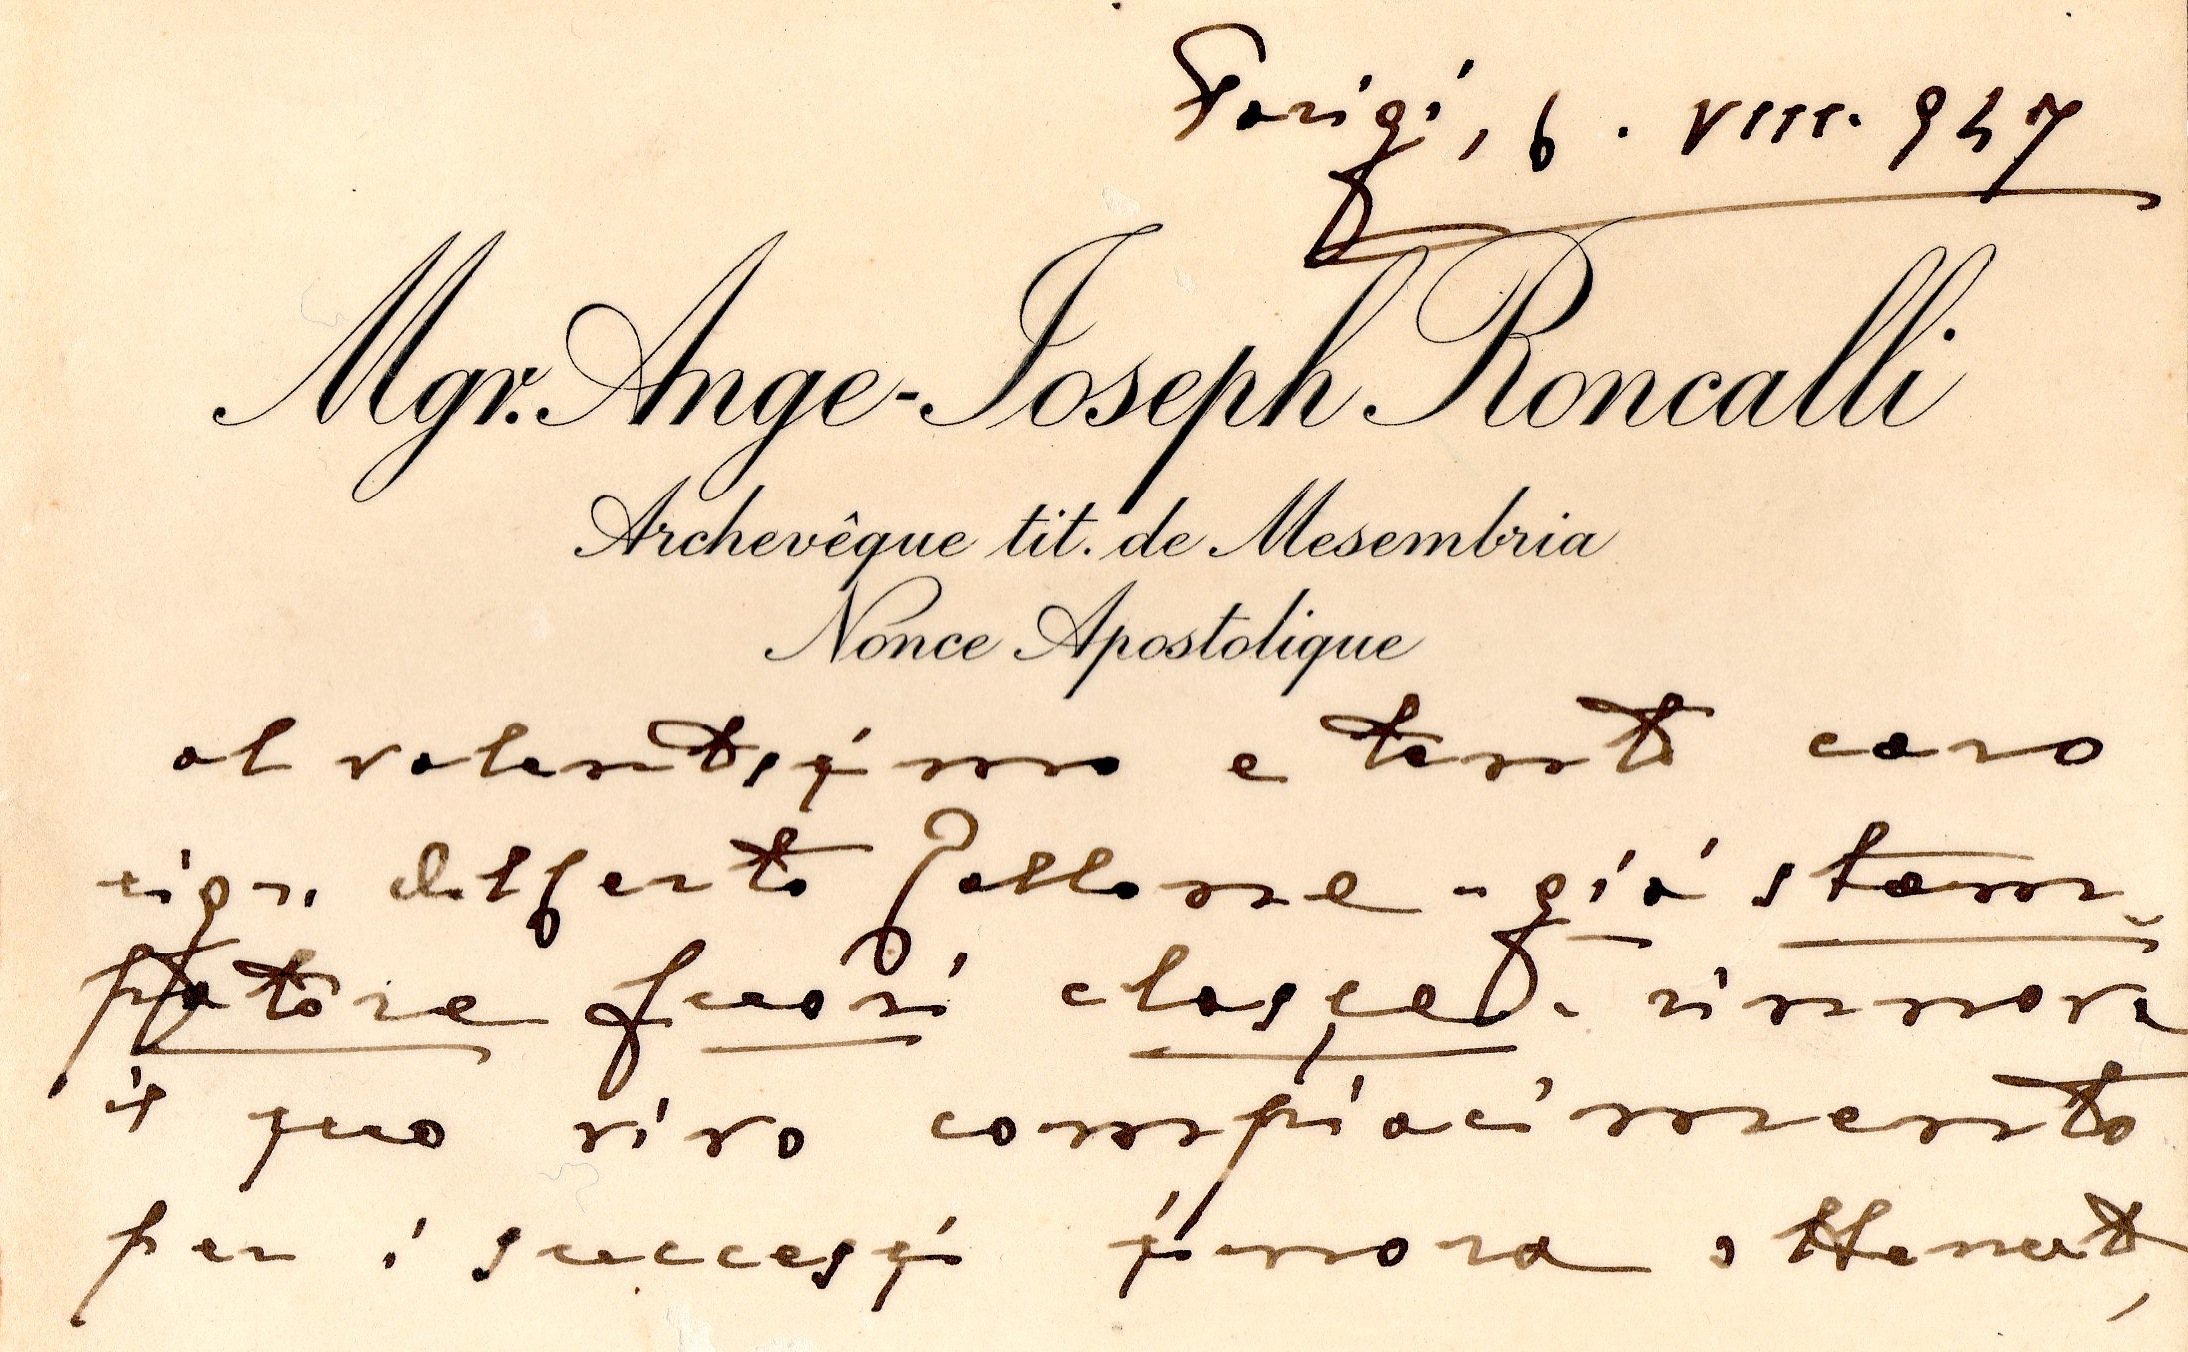 Parigi, 6. VIII. 947
Mgr. Ange-Joseph Roncalli
Archevêque tit. de Mesembria
Nonce Apostolique
al valentissimo e tanto caro
sign. Alberto Gallone - già stam
patore fuori classe - rinnova
il suo vivo compiacimento
per i successi sinora ottenuti,